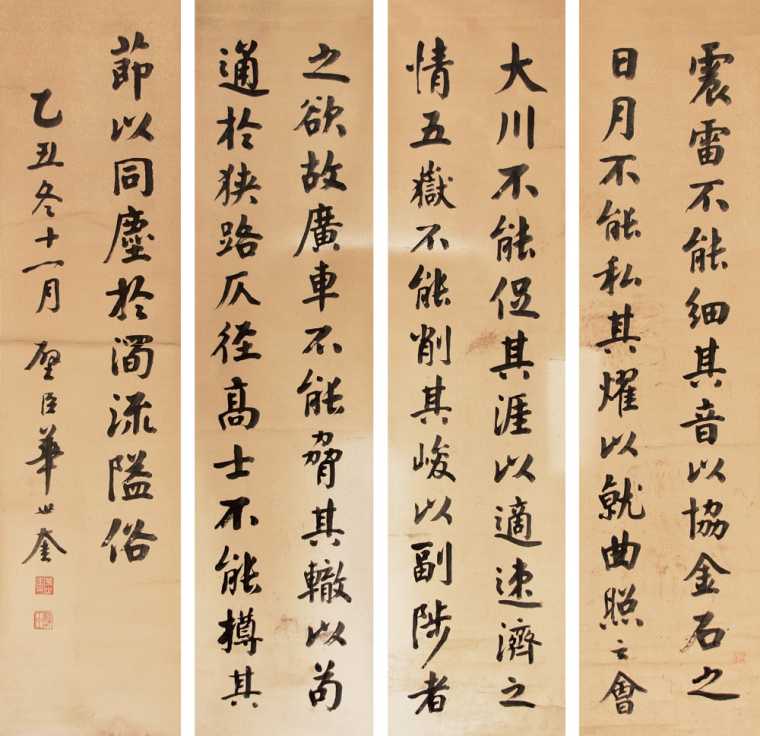 震雷不能細其音以協金石之
日月不能私其燿以就曲照之會
大川不能促其涯以適速濟之
情五嶽不能削其峻以副陟者
之欲故廣車不能脅其轍以苟
通於狹路仄徑高士不能撙其
節以同塵於濁流隘俗
乙丑冬十一月 璧臣華世奎